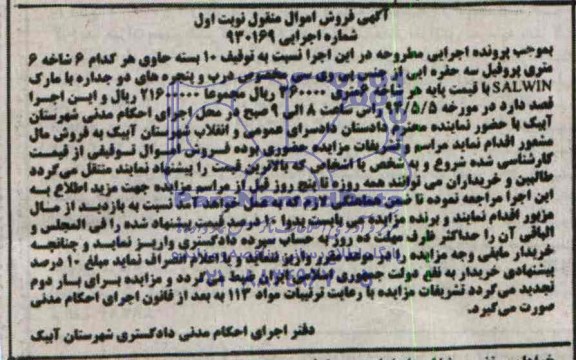 آگهی فروش اموال منقول نوبت اول
شماره اجرایی ۹۳۰۱۶۹
بموجب پرونده اجرایی مطروحه در این اجرا نسبت به توقیف ۱۰ بسته حاوی هر کدام ۶ شاخه ۶
متری پروفیل سه حفره ایی از جنس یو وی سی مخصوص درب و پنجره های دو جداره با مارک
SALWIN با قیمت پایه هر شاخه ۶ متری ۳۶۰۰۰۰ ریال مجموعا ۲۱۶۰۰۰۰۰ ریال و این اجرا
قصد دارد در مورخه ۹۳/۵/۵ راس ساعت ۸ الی ۹ صبح در محل اجرای احکام مدنی شهرستان
آبیک با حضور نماینده محترم دادستان دادسرای عمومی و انقلاب شهرستان آبیک به فروش مال
مذکور اقدام نماید مراسم و تشریفات مزایده حضوری بوده فروش اموال توقیفی از قیمت
کارشناسی شده شروع و به شخص یا اشخاص که بالاترین قیمت را پیشنهاد نمایند منتقل می‌گردد
طالبین و خریداران می توانند همه روزه تا پنج روز قبل از مراسم مزایده جهت مزید اطلاع به
این اجرا مراجعه نموده تا ضمن هماهنگی لازم که به عمل خواهد آمد نسبت به بازدید از مال
مزبور اقدام نمایند و برنده مزایده می بایست بدوا ۱۰ درصد قیمت پیشنهاد شده را فی المجلس و
الباقی آن را حداکثر ظرف مهلت ده روز به حساب سپرده دادگستری واریز نماید و چنانچه
خریدار مابقی وجه مزایده را در موعد مقرر واریز ننماید یا اعلام انصراف نماید مبلغ ۱۰ درصد
پیشنهادی خریدار به نفع دولت جمهوری اسلامی ایران ضبط می‌گردد و مزایده برای بار دوم
تجدید می‌گردد تشریفات مزایده با رعایت ترتیبات مواد ۱۱۳ به بعد از قانون اجرای احکام مدنی
صورت می‌گیرد.
دفتر اجرای احکام مدنی دادگستری شهرستان آبیک